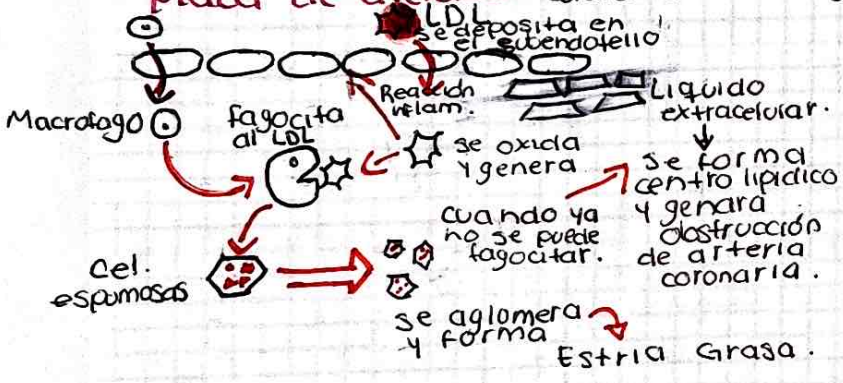 Placa de
LDL
se deposita en
el subendotelio
Reacción
inflam.
Liquido
extracelular.
Macrofago
fagocita
al LDL
se oxida
y genera
se forma
centro lipidico
y genara
obstrucción
de arteria
coronaria.
cuando ya
no se puede
fagocitar.
Cel.
espumosas
se aglomera
y forma
Estria Grasa.